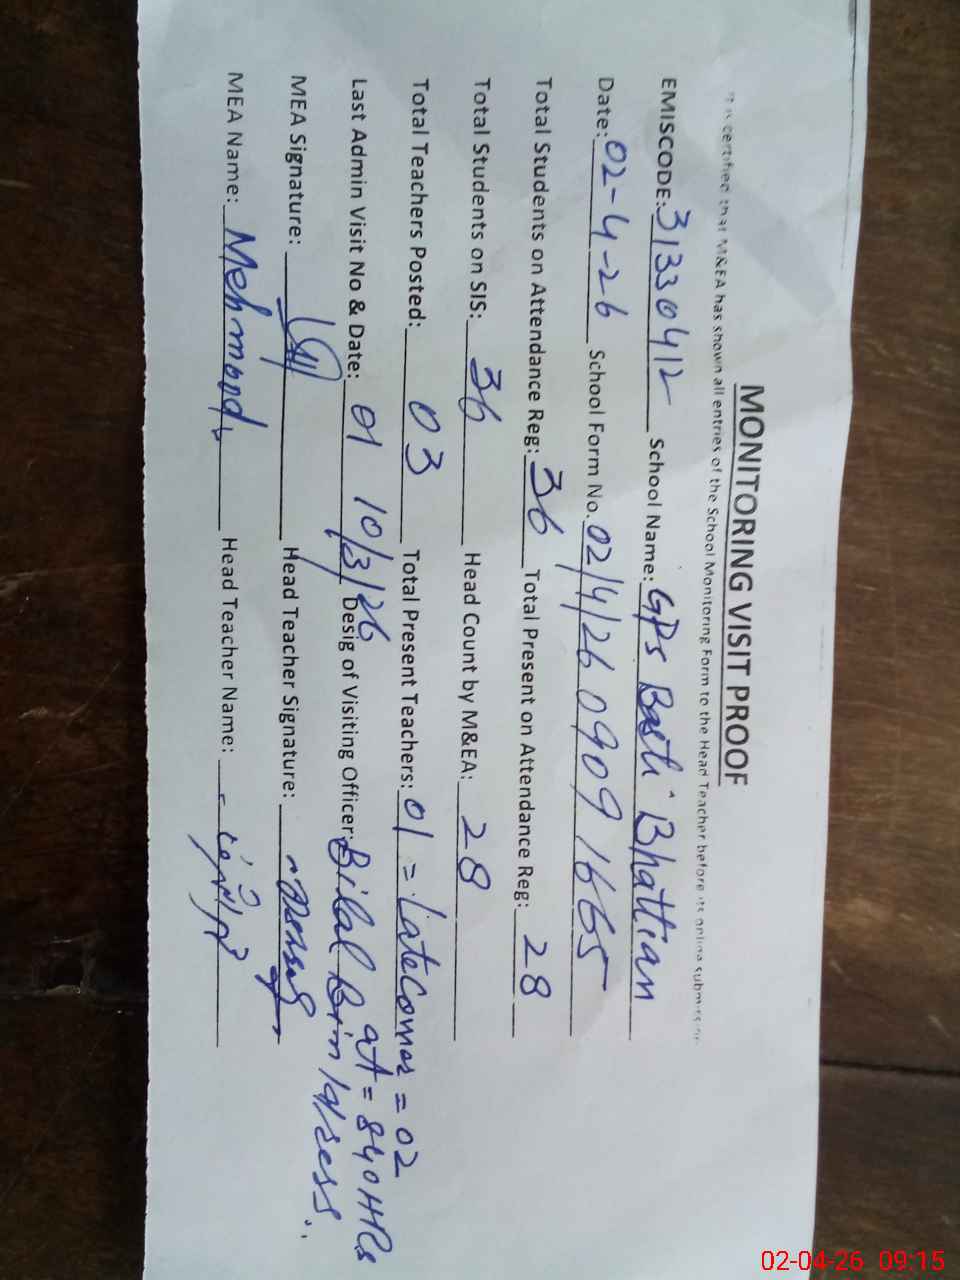 MONITORING VISIT PROOF
It is certified that M&EA has shown all entries of the School Monitoring Form to the Head Teacher before its online submission
EMISCODE: 31330412 School Name: GPS Basti Bhattian
Date: 02-4-26 School Form No. 02/4/26 0909 1665
Total Students on Attendance Reg: 36 Total Present on Attendance Reg: 28
Total Students on SIS: 36 Head Count by M&EA: 28
Total Teachers Posted: 03 Total Present Teachers: 01 = Latecomer = 02
at = 840 HRs
Last Admin Visit No & Date: 01 10/3/26 Desig of Visiting Officer: Bilal Bin
MEA Signature: Head Teacher Signature:
MEA Name: Mehmood Head Teacher Name:
02-04-26 09:15